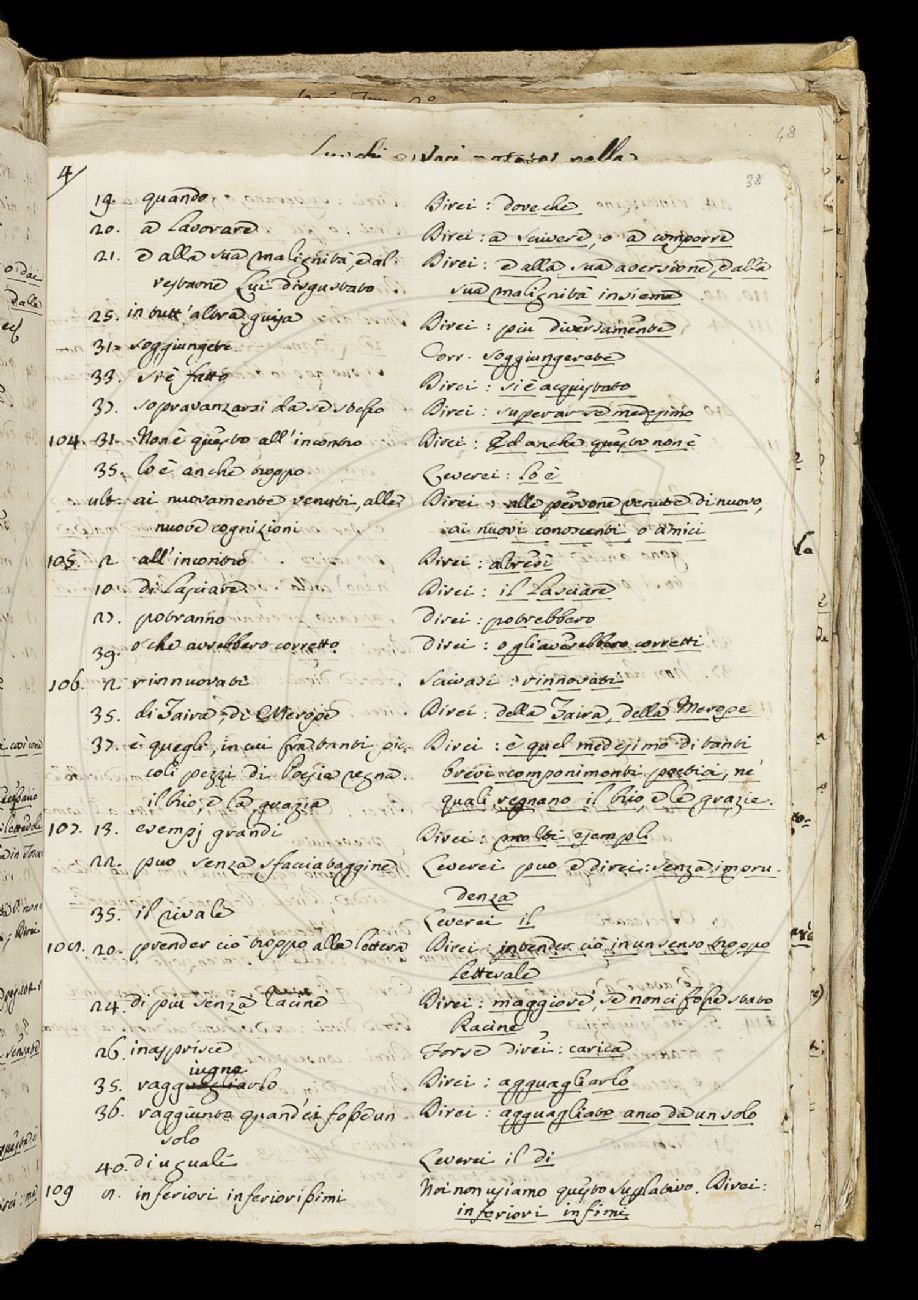 48
4
38
19. quando Direi: doveche
20. a lavorare Direi: a scivere, o a comporre
21. e alla sua malignità, e al Direi: e alla sua aversione, e alla
restarne Lui disgustato sua malignità insieme
25. in tutt'altra guisa Direi: piu diversamente
31. soggiungete Corr. soggiungerete
33. si è fatto Direi: si è acquistato
37. sopravanzarsi da se stesso Direi: superar se medesimo
104. 31. Non è questo all'incontro Direi: Ed anche questo non è
35. lo è anche troppo Leverei: lo è
ult. ai nuovamente venuti, alle Direi: alle persone venute di nuovo,
nuove cognizioni ai nuovi conoscenti, o amici
105. 2 all'incontro Direi: altresì
10 di lasciare Direi: il lasciare
27. potranno direi: potrebbero
39. o che avrebbero corretto direi: o gli averebbero corretti
106. 2. rinnuovati Scivasi: rinnovati
35. di Zaira, di Merope Direi: della Zaira, della Merope
37. è quegli, in cui fra tanti pic- Direi: è quel medesimo di tanti
coli pezzi di Poesia regna brevi componimenti poetici, ne'
il brio, e la grazia quali regnano il brio, e le grazie.
107. 13. esempj grandi Direi: molti esempli
22. puo senza sfacciataggine Leverei puo e direi: senza impru-
denza
35. il rivale Leverei il
20. prender ciò troppo alla lettera Direi: intender ciò in un senso troppo
letterale
24. di piu senza Racine Direi: maggiore, se non ci fosse stato
Racine
26. inasprisce Forse direi: carica
iugne
35. raggguagliarlo Direi: agguagliarlo
36. raggiunto quand'ei fosse un Direi: agguagliato anco da un solo
solo
40. di uguali Leverei il di
109 2. inferiori inferiorissimi Noi non usiamo questo suplativo. Direi:
inferiori infimi